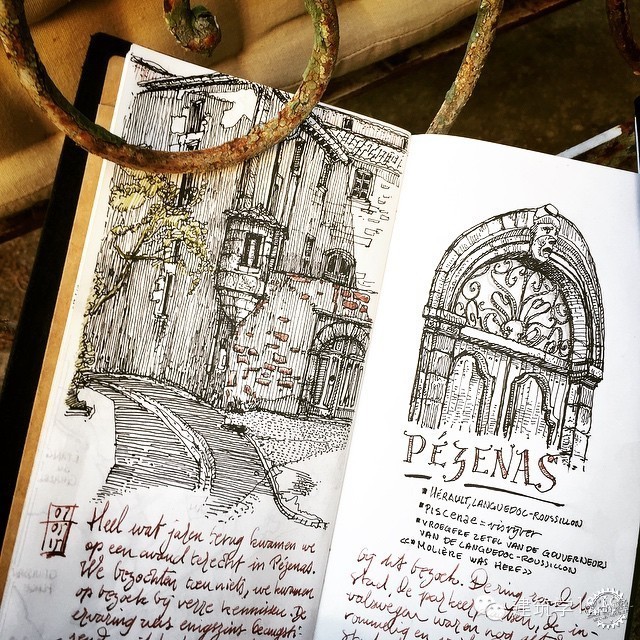 07
05
17
Heel wat jaren terug kwamen we
op een avond terecht in Pézenas.
We bezochten toen niets, we kwamen
op bezoek bij verre kennissen. De
ervaring was enigszins
PÉZENAS
* HÉRAULT, LANGUEDOC-ROUSSILLON
* PISCENAE = visvijver
* VROEGERE ZETEL VAN DE GOUVERNEURS
VAN DE LANGUEDOC-ROUSSILLON
«* MOLIÈRE WAS HERE»
bij dit bezoek. De ring rond de
stad, de parkeer de in
valswegen waren